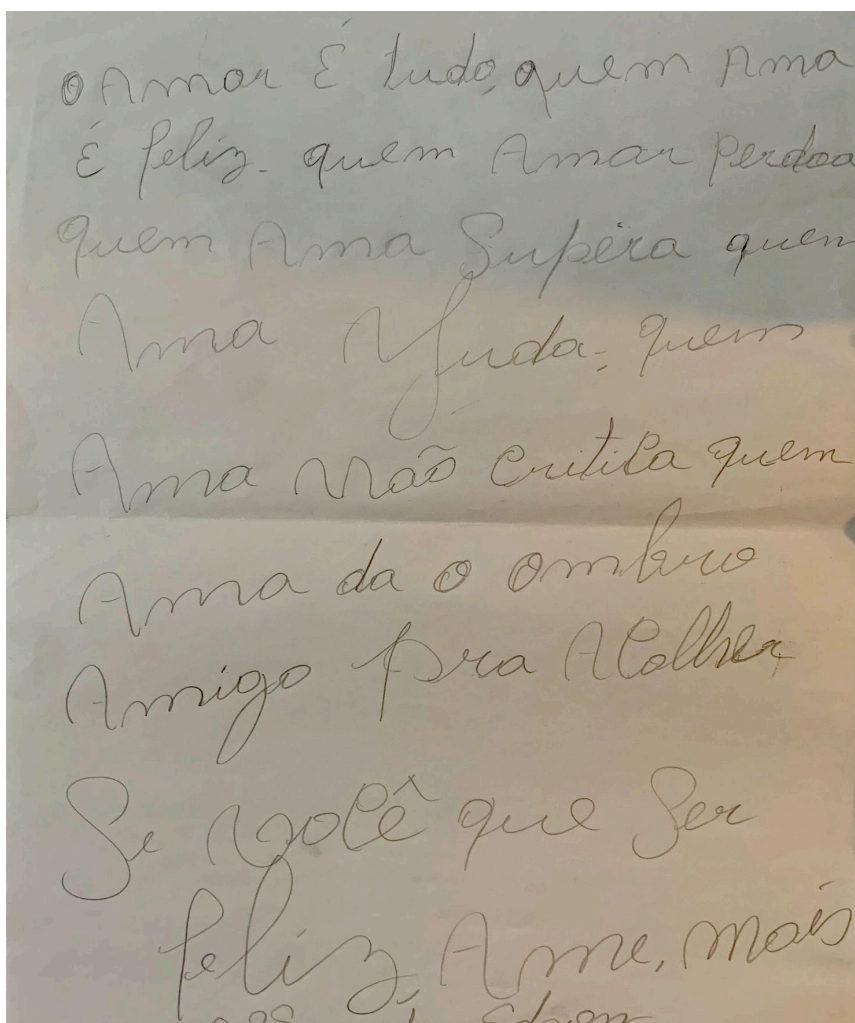 O Amor É tudo, quem Ama
É feliz. quem Amar Perdoa
quem Ama Supéra quem
Ama Ajuda, quem
Ama não critica quem
Ama da o ombro
Amigo pra Acolher
Se você que ser
feliz, Ame, mais